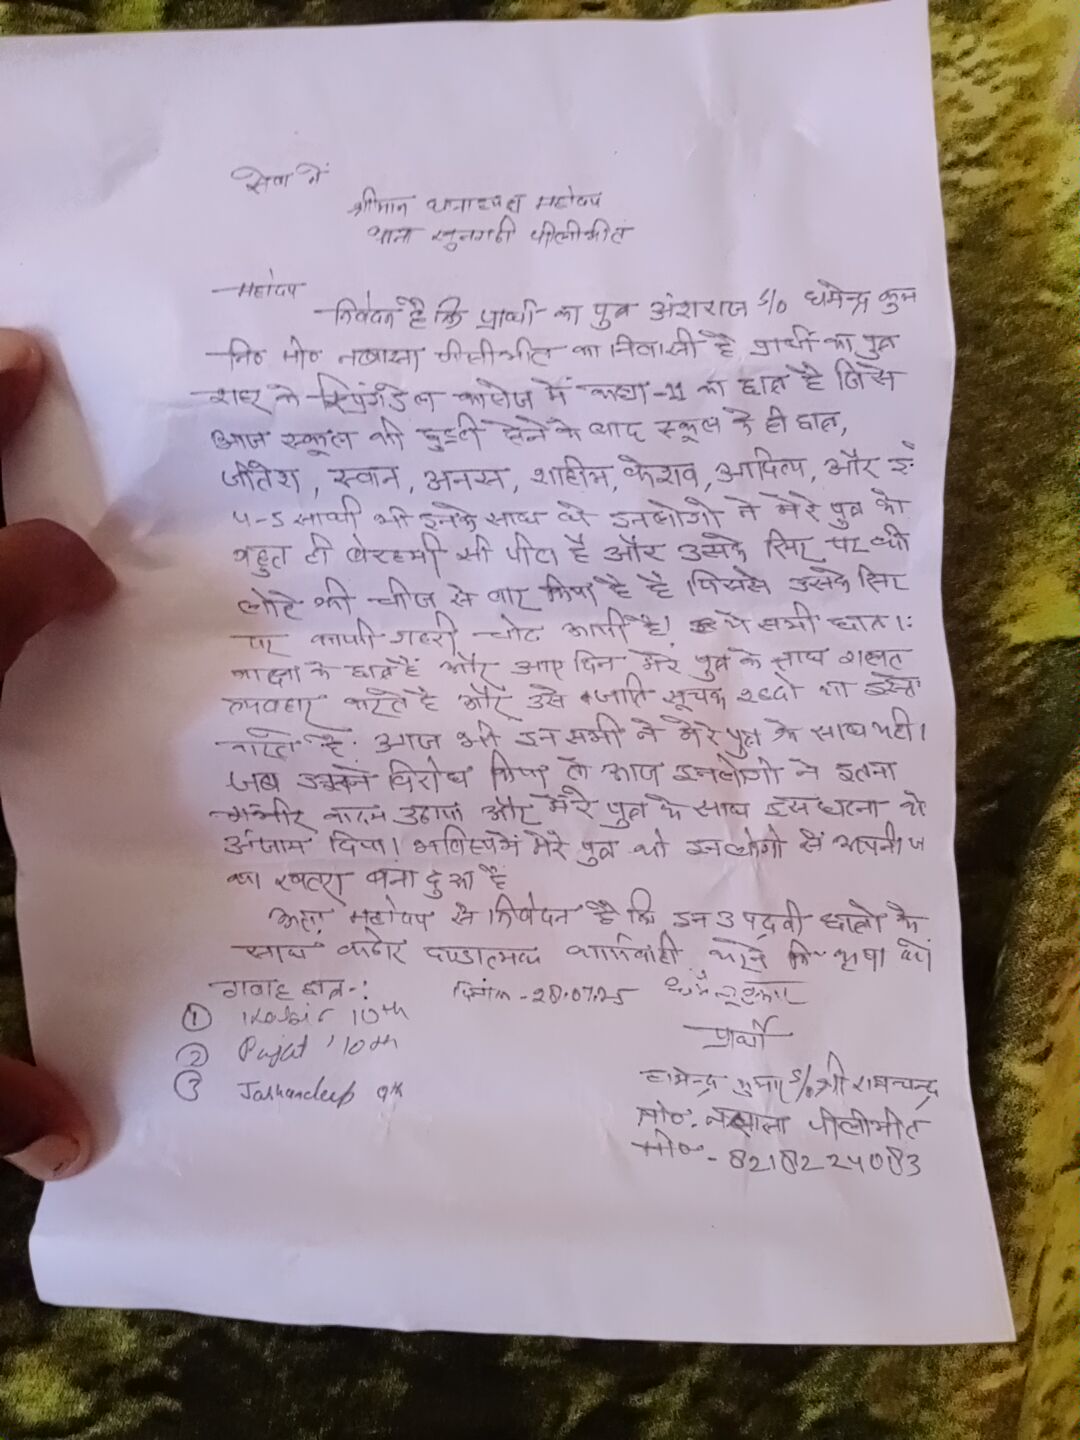 सेवा में
श्रीमान थानाध्यक्ष महोदय
थाना सुनगढी पीलीभीत
महोदय
निवेदन है कि प्रार्थी का पुत्र अंशराज S/o धर्मेन्द्र कुम
नि० मो० नखासा पीलीभीत का निवासी है प्रार्थी का पुत्र
शहर के स्प्रिंगडेल कालेज में कक्षा-11 का छात्र है जिसे
आज स्कूल की छुट्टी होने के बाद स्कूल के ही छात्र,
जीतेश, अनस, शाहीम, केशव, आदित्य, और इ
4-5 साथी भी इनके साथ थे इनलोगो ने मेरे पुत्र को
बहुत ही बेरहमी सी पीटा है और उसके सिर पर
लोहे की चीज से वार किया है है जिससे उसके सिर
पर काफी गहरी चोट आयी है। ये सभी छात्र
कक्षा के छात्र हैं और आए दिन मेरे पुत्र के साथ गलत
व्यवहार करते है और उसे जाति सूचक शब्दो का इस्ते
करते है. आज भी इन सभी ने मेरे पुत्र के साथ यही
जब उसने विरोध किया तो आज इनलोगो ने इतना
गंभीर कदम उठाया और मेरे पुत्र के साथ इस घटना को
अंजाम दिया। भविष्य में मेरे पुत्र को इनलोगो से अपनी ज
का खतरा बना हुआ है
अतः महोदय से निवेदन है कि इन उपद्रवी छात्रो के
साथ कठोर दण्डात्मक कार्यवाही करने कि कृपा करें
गवाह छात्र-: दिनांक-28.07.25
① 10th
② Rajat 10th
③ Jashandeep 9th
प्रार्थी
धर्मेन्द्र कुमार S/o श्री रामचन्द्र
मो०. नखासा पीलीभीत
मो०-8218224083